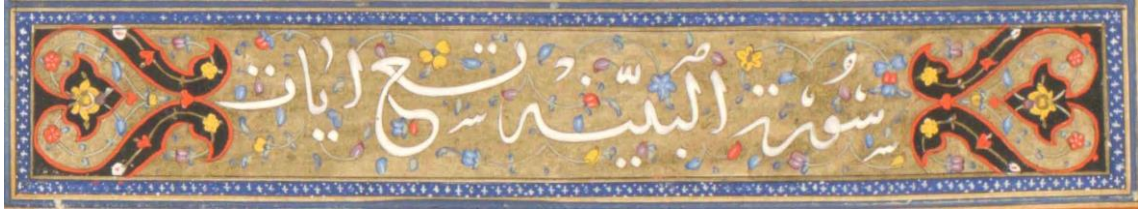 سُورة البيّنة تسع ايات